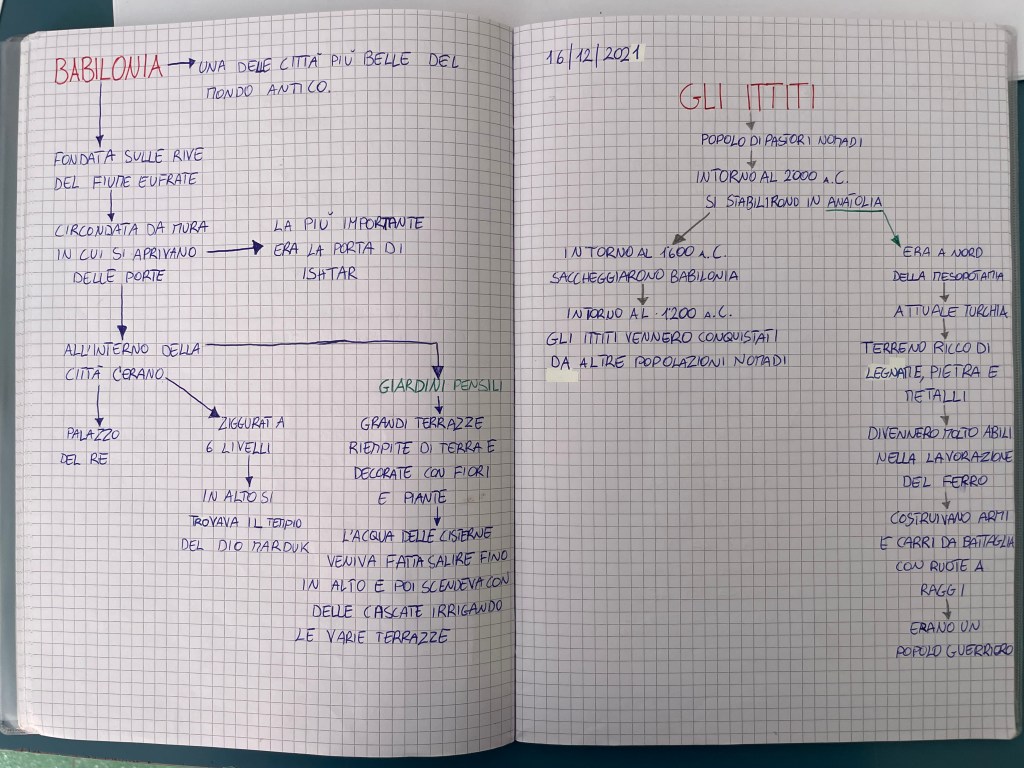 BABILONIA → UNA DELLE CITTÀ PIÙ BELLE DEL
MONDO ANTICO.
FONDATA SULLE RIVE
DEL FIUME EUFRATE
CIRCONDATA DA MURA
IN CUI SI APRIVANO
DELLE PORTE
LA PIÙ IMPORTANTE
ERA LA PORTA DI
ISHTAR
ALL'INTERNO DELLA
CITTÀ C'ERANO
PALAZZO
DEL RE
ZIGGURAT A
6 LIVELLI
IN ALTO SI
TROVAVA IL TEMPIO
DEL DIO MARDUK
GIARDINI PENSILI
GRANDI TERRAZZE
RIEMPITE DI TERRA E
DECORATE CON FIORI
E PIANTE
L'ACQUA DELLE CISTERNE
VENIVA FATTA SALIRE FINO
IN ALTO E POI SCENDEVA CON
DELLE CASCATE IRRIGANDO
LE VARIE TERRAZZE
16/12/2021
GLI ITTITI
POPOLO DI PASTORI NOMADI
INTORNO AL 2000 a.C.
SI STABILIRONO IN ANATOLIA
INTORNO AL 1600 a.C.
SACCHEGGIARONO BABILONIA
INTORNO AL 1200 a.C.
GLI ITTITI VENNERO CONQUISTATI
DA ALTRE POPOLAZIONI NOMADI
ERA A NORD
DELLA MESOPOTAMIA
ATTUALE TURCHIA
TERRENO RICCO DI
LEGNAME, PIETRA E
METALLI
DIVENNERO MOLTO ABILI
NELLA LAVORAZIONE
DEL FERRO
COSTRUIVANO ARMI
E CARRI DA BATTAGLIA
CON RUOTE A
RAGGI
ERANO UN
POPOLO GUERRIERO